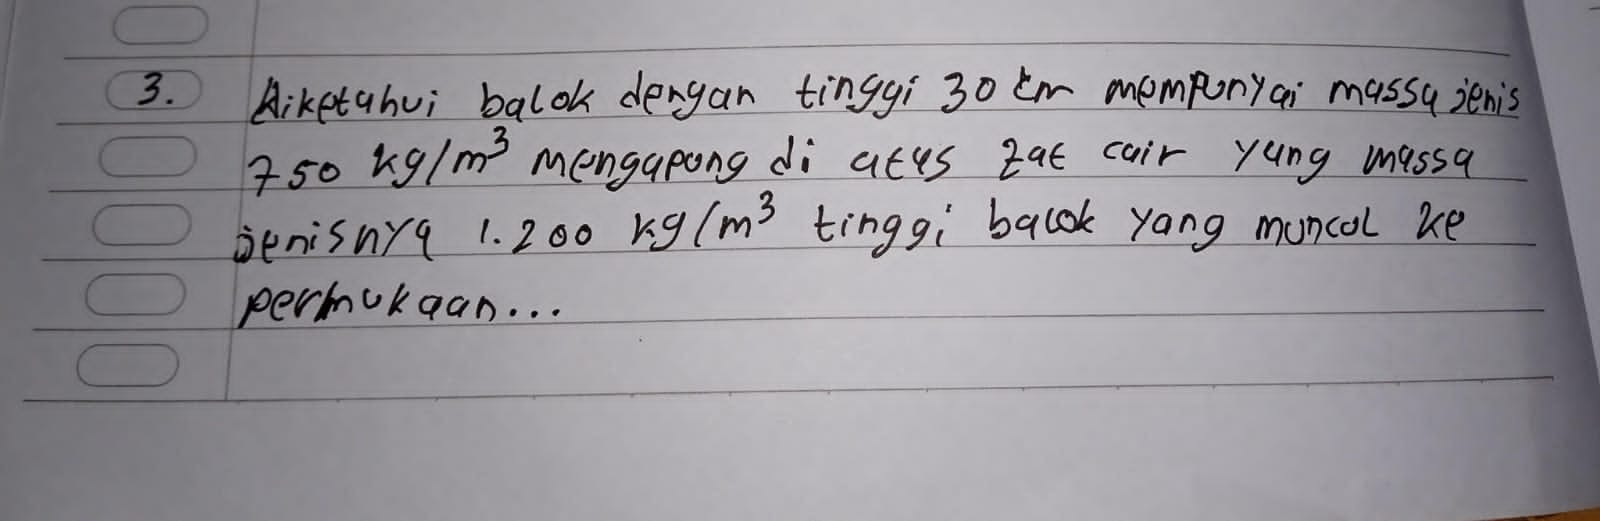 3. Diketahui balok dengan tinggi 30 cm mempunyai massa jenis
750 kg/m³ mengapung di atas zat cair yang massa
jenisnya 1.200 kg/m³ tinggi balok yang muncul ke
permukaan...